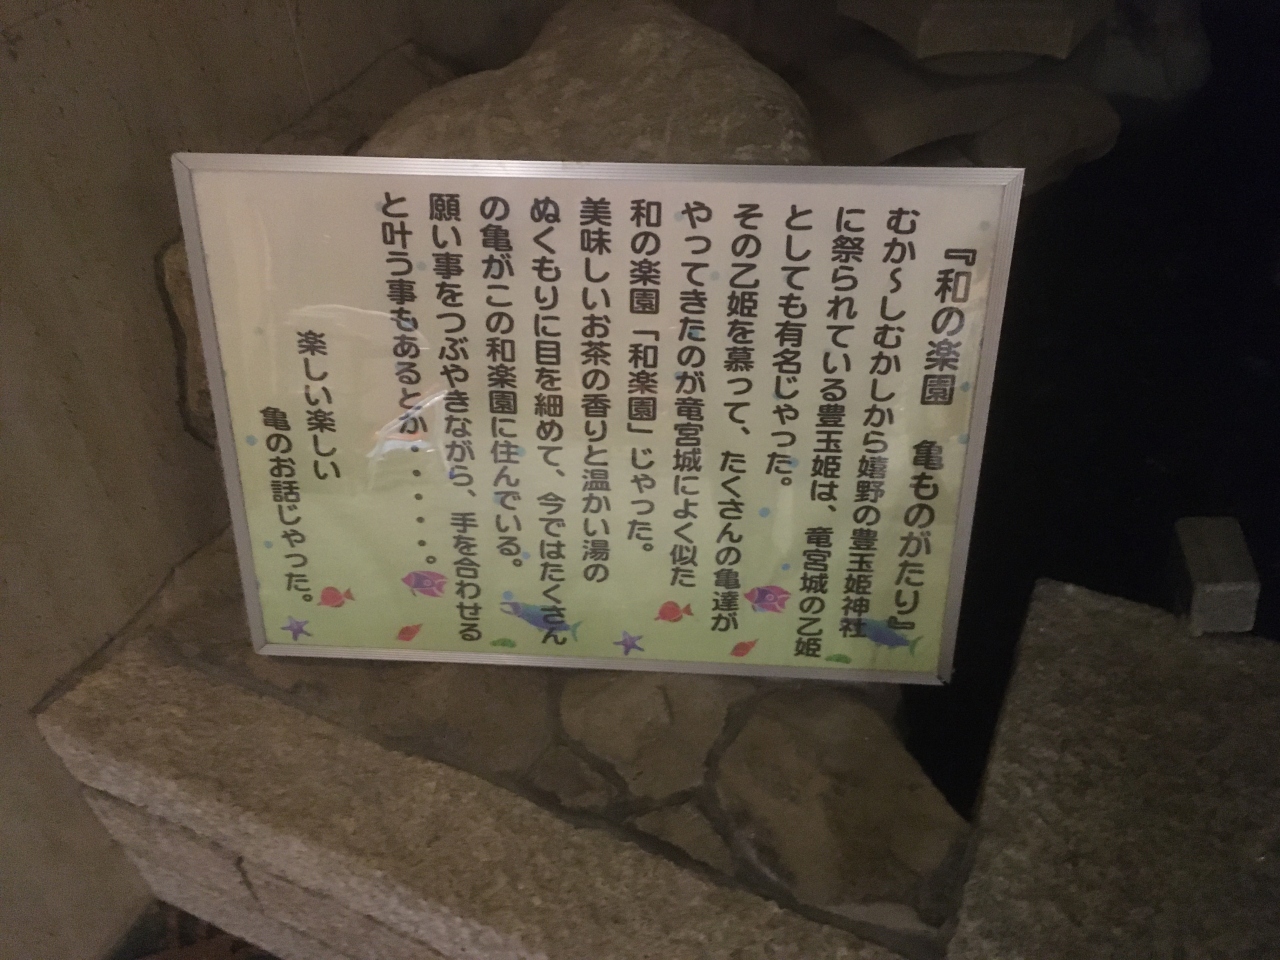 『和の楽園　亀ものがたり』
むか～しむかしから嬉野の豊玉姫神社
に祭られている豊玉姫は、竜宮城の乙姫
としても有名じゃった。
その乙姫を慕って、たくさんの亀達が
やってきたのが竜宮城によく似た
和の楽園「和楽園」じゃった。
美味しいお茶の香りと温かい湯の
ぬくもりに目を細めて、今ではたくさん
の亀がこの和楽園に住んでいる。
願い事をつぶやきながら、手を合わせる
と叶う事もあるとか・・・・・。
楽しい楽しい
亀のお話じゃった。